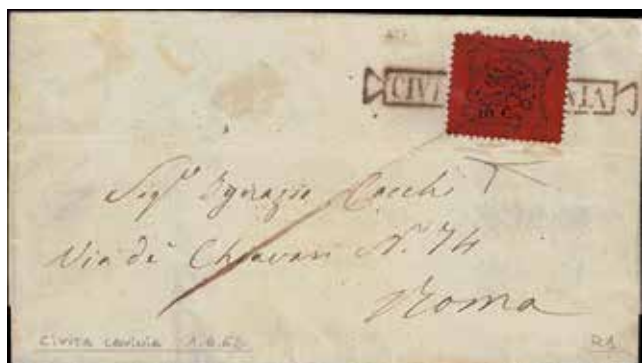 CIVI VIA
Sigr Ignazio Cacchi
Via de' Chiavari N. 74
Roma
Civita Lavinia
R1